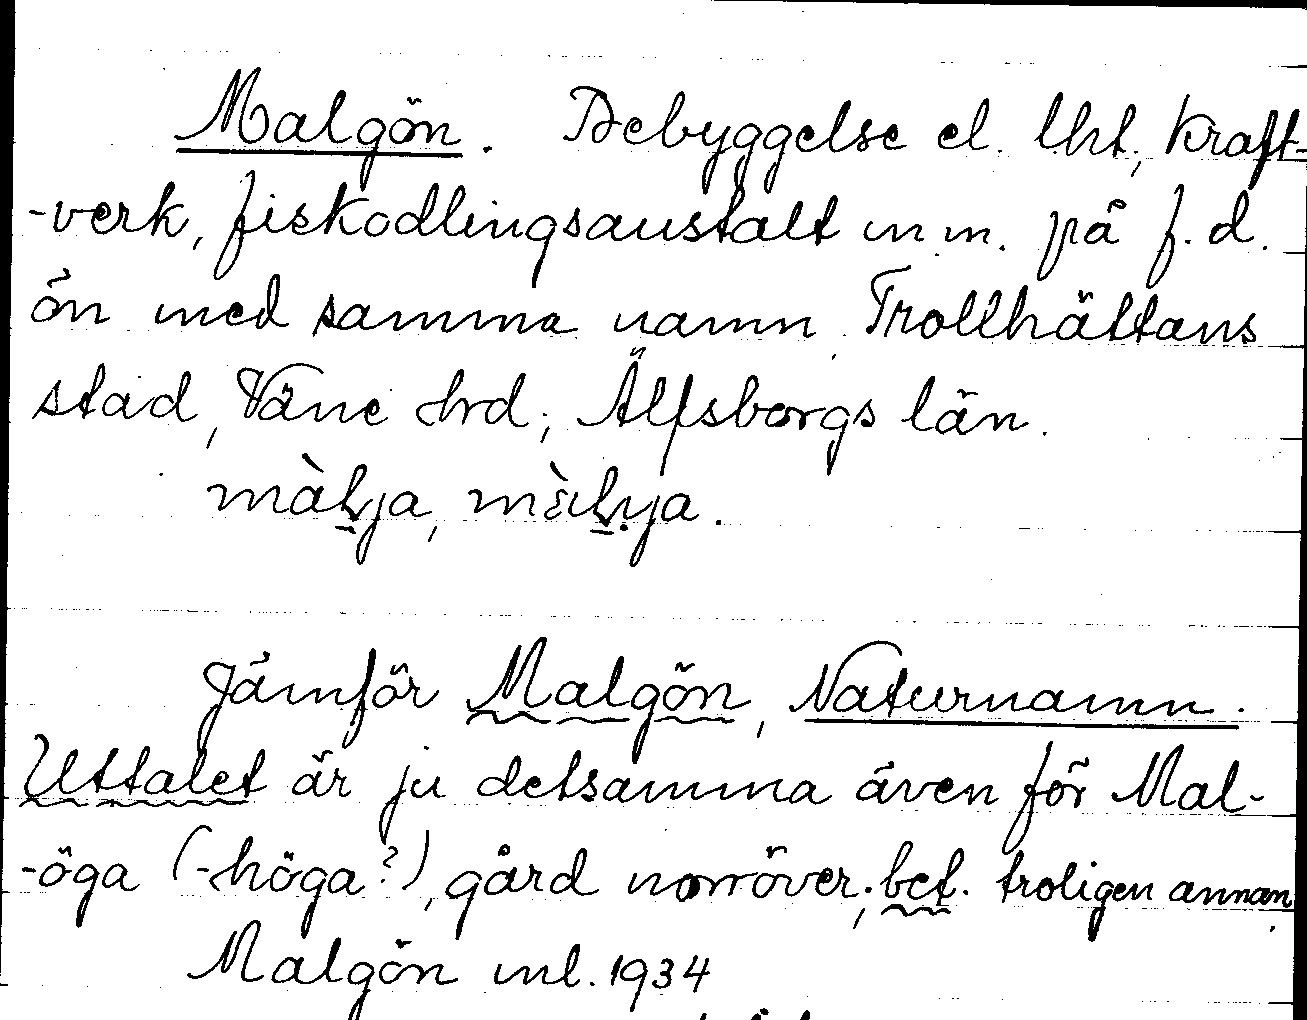 Malgön. Bebyggelse el. lht, kraft-
-verk, fiskodlingsanstalt m.m. på f.d.
ön med samma namn. Trollhättans
stad, Väne hrd, Älfsborgs län.
Jämför Malgön, Naturnamn.
Uttalet är ju detsamma även för Mal-
-öga (-höga?), gård norröver; bet. troligen annan.
Malgön inl. 1934